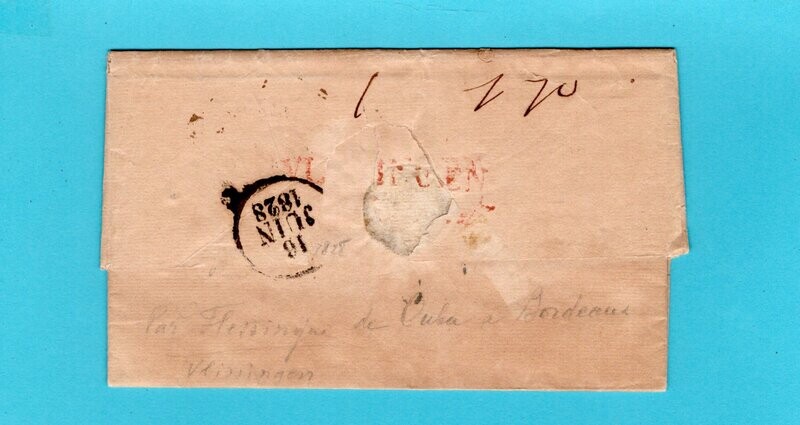 1 1 70
VLISSINGEN
16
JUIN
1828
1828
Par Flessingue de Cuba a Bordeaux
Vlissingen